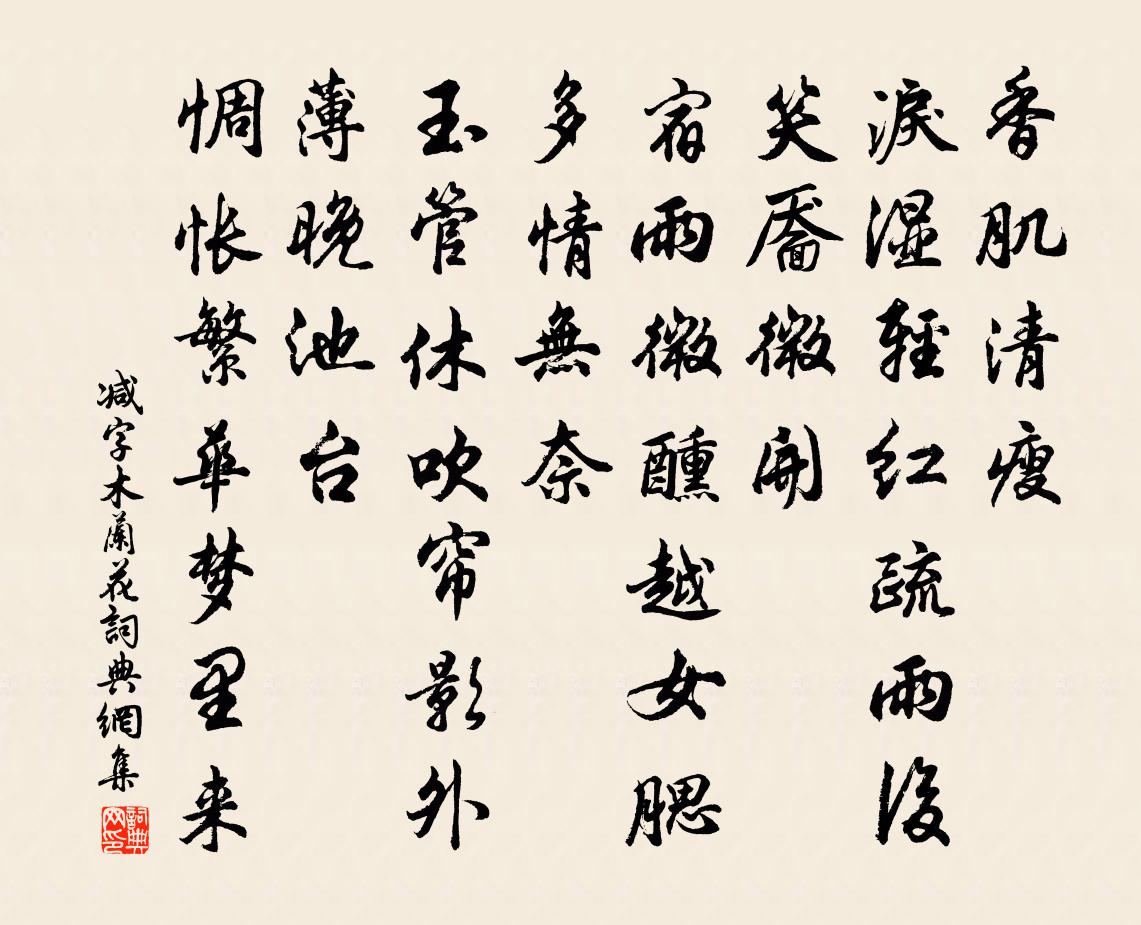 香肌清瘦
淚湿輕红疏雨後
笑靥微開
宿雨微醺越女腮
多情無奈
玉管休吹帘影外
薄晚池台
惆怅繁華梦里来
减字木蘭花詞典網集
詞典網印